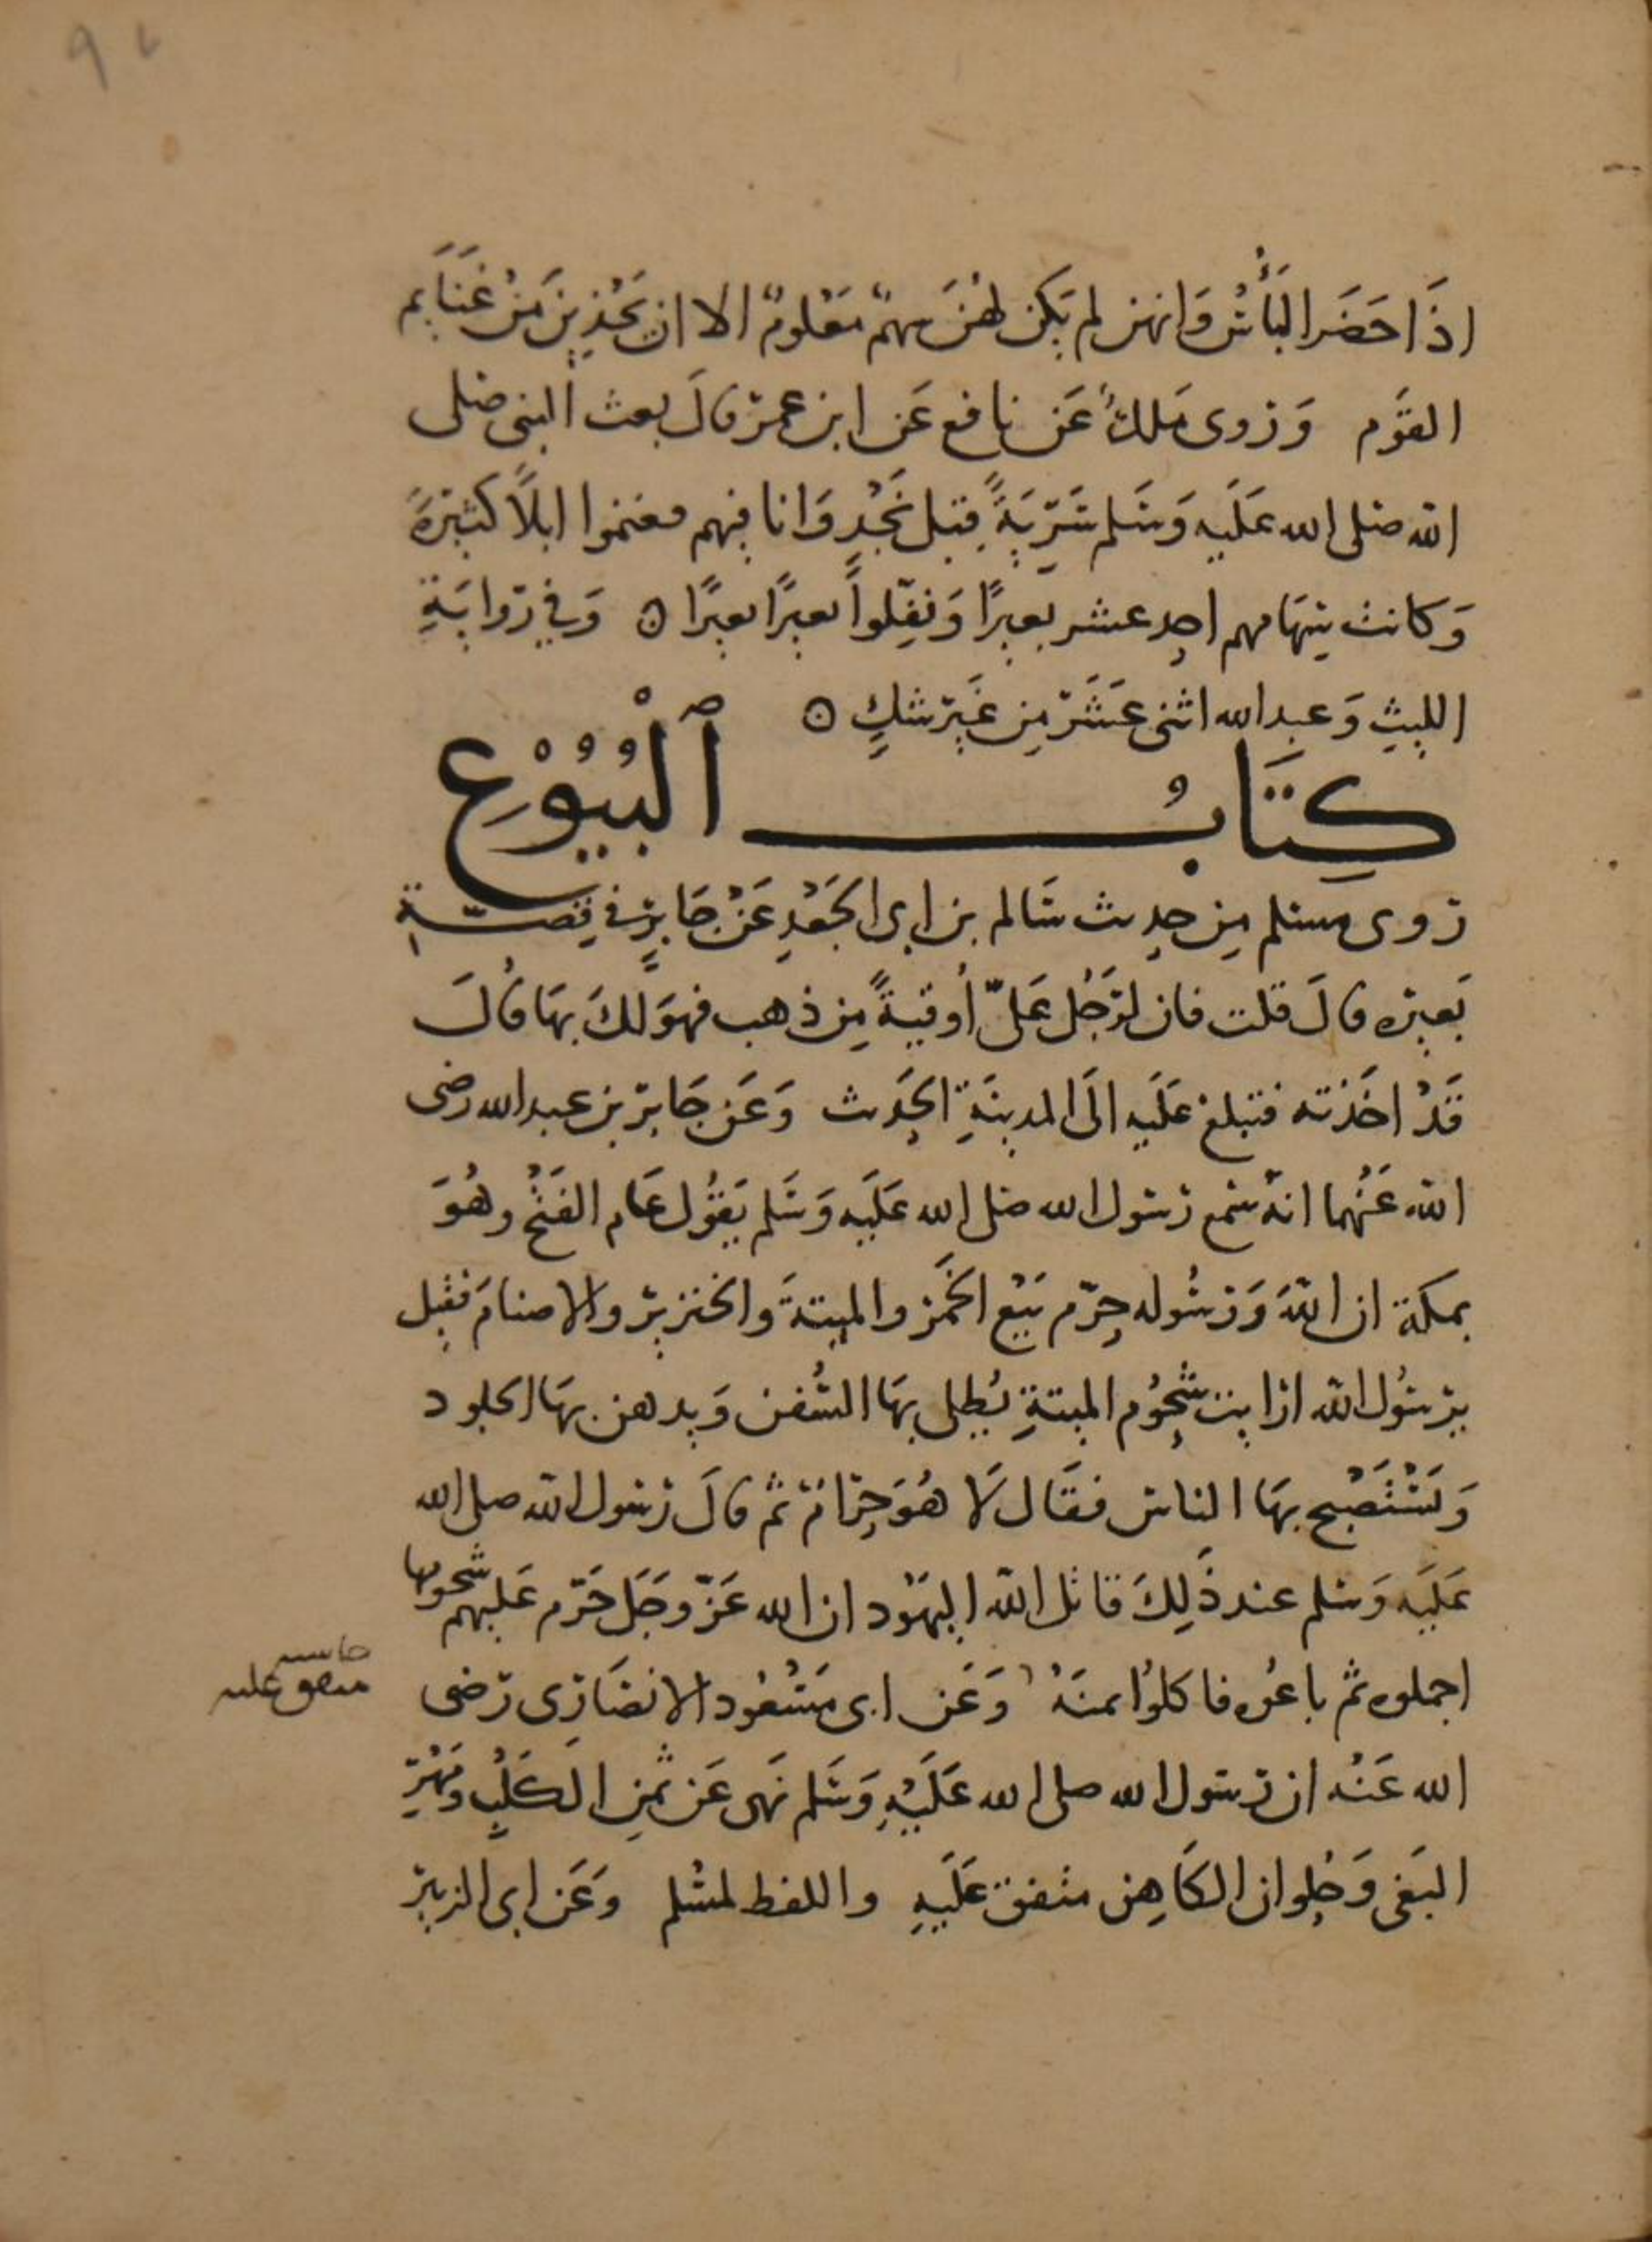 اذَا حَضَر البَأسُ وَانهن لم يَكن لهُنَ سهمٌ مَعْلومٌ الا ان يُحْذين مَنْ غَنَايم
القوَم وَروى مَلك عَن نافع عَن ابن عمر قالَ بعث النبى صلى
الله صلى الله عَلَيه وَسَلم سَرِّيَةً قِبل نَجْدٍ وَانا فيهم فغنموا ابلاً كثيرةً
وَكانت سهَامهم احد عشر بعيرًا وَنفِّلوا بعيرًا بعيرًا ۞ وَفي رّوايَةِ
الليثِ وَعبد الله اثنى عَشَر مِن غَير شكٍ ۞
كِتَابُ ٱلْبُيُوْعِ
روى مسلم مِن حديث سَالم بن ابى الجَعْدِ عَنْ جَابرٍ في قِصّة
بَعيره قالَ قلت فان لرَجُل عَلىّ أُوقيةً مِن ذهب فهوَ لكَ بهَا قالَ
قَدْ اخَذته فتبلغ عَلَيه الَى المدينَةِ الحَديث وَعَن جَابر بن عبد الله رضى
الله عَنْهما انهُ سمع رسول الله صلى الله عَلَيه وَسَلم يَقوُل عَام الفَتْح وهُوَ
بمكة ان اللهَ وَرسُوله حرّم بَيْع الخَمر والميتةَ والخنزير والاصنامَ فقيل
يرسُول الله ارايت شحُوم الميتةِ يُطلى بهَا السُّفن وَيدهن بهَا الجلود
وَيَسْتَصْبح بهَا الناس فقَال لَا هُوَ حرَامٌ ثم قالَ رسول الله صلى الله
عَلَيَه وَسلم عند ذَلِكَ قاتل الله اليهَوُد ان الله عَزّ وجَل حَرّم عَليهم شحومها
اجملوه ثم باعُوه فاكلوُا ثمنَهُ وَعَن ابى مَسْعُود الانصَارِى رَضى
حاشيه
متفق عليه
الله عَنْهُ ان رسول الله صلى الله عَلَيْهِ وَسَلم نَهى عَن ثمنِ الكَلْبِ وَمَهْرِ
البَغى وَحُلوان الكَاهِن متفق عَلَيهِ واللفظ لمسْلم وَعَن ابى الزبير